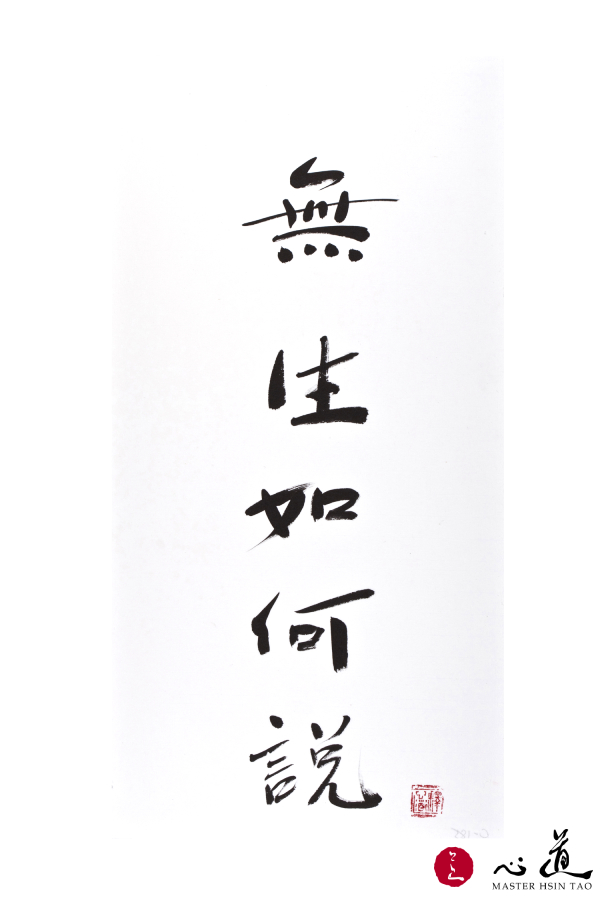 無生如何說
心道
MASTER HSIN TAO